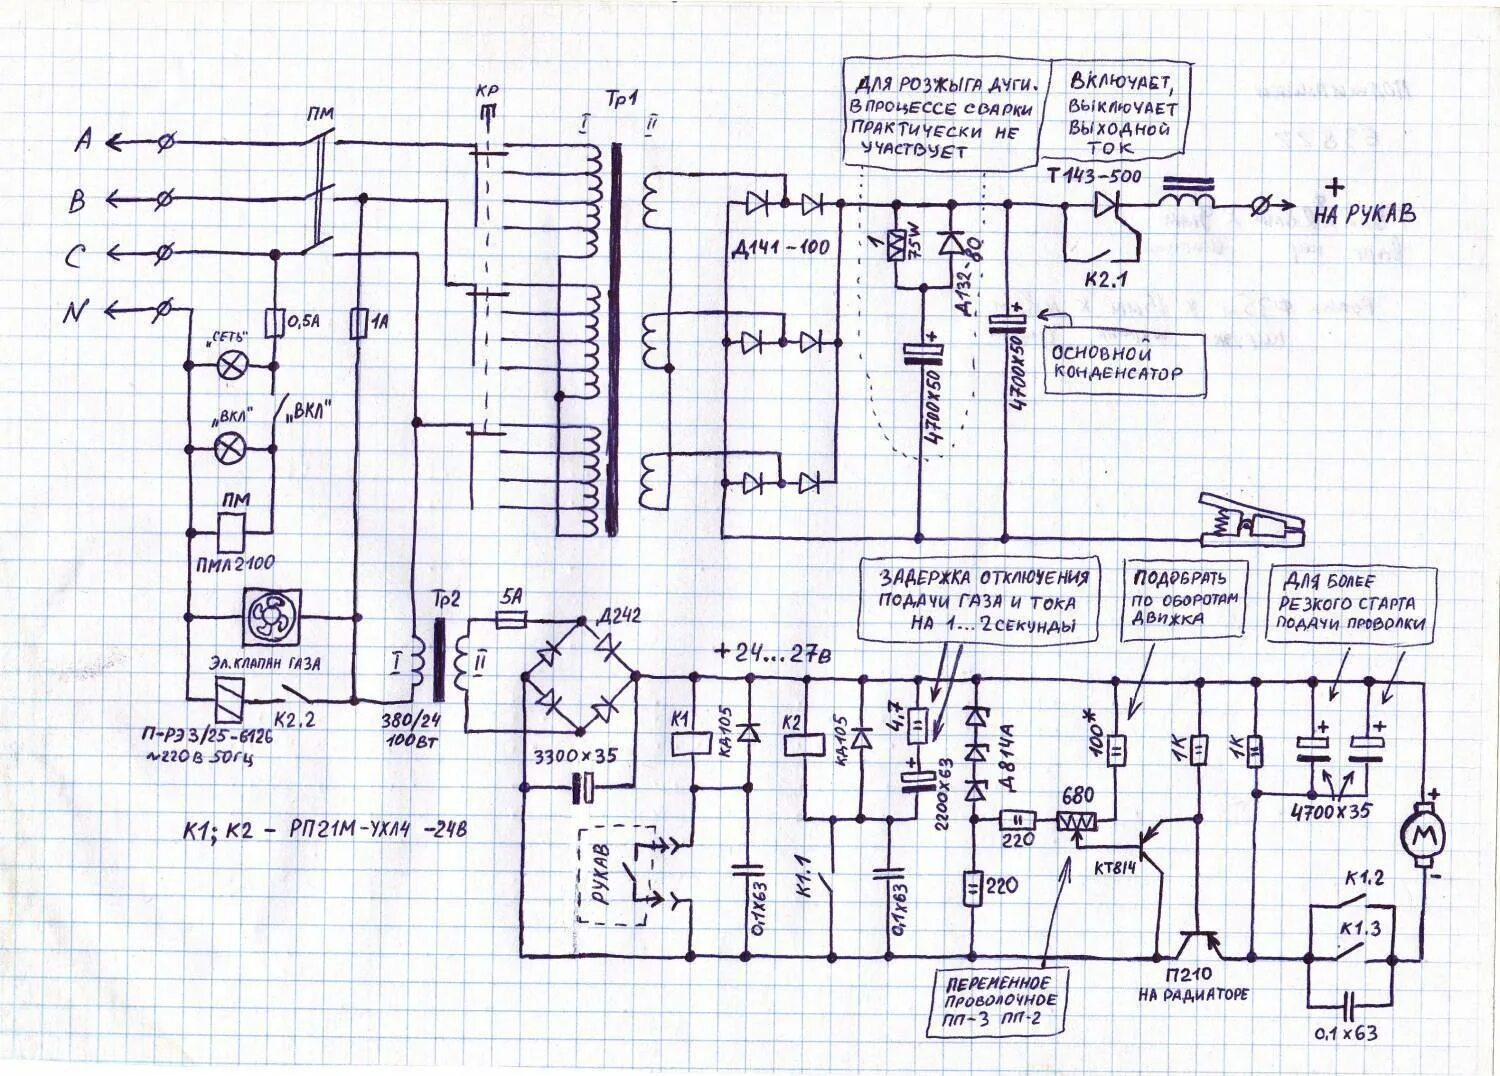 ПМ
КР
Тр1
I
II
А
В
С
N
0,5А
1А
„СЕТЬ"
„ВКЛ"
„ВКЛ"
ПМ
ПМЛ2100
ЭЛ.КЛАПАН ГАЗА
К2.2
П-РЭ3/25-6126
~220В 50ГЦ
Д141-100
ДЛЯ РОЗЖЫГА ДУГИ.
В ПРОЦЕССЕ СВАРКИ
ПРАКТИЧЕСКИ НЕ
УЧАСТВУЕТ
ВКЛЮЧАЕТ,
ВЫКЛЮЧАЕТ
ВЫХОДНОЙ
ТОК
Т143-500
+
НА РУКАВ
К2.1
1
75W
Д132-80
+
4700Х50
+
4700Х50
ОСНОВНОЙ
КОНДЕНСАТОР
Тр2
I
II
380/24
100ВТ
5А
Д242
3300Х35
+24...27В
К1; К2 - РП21М-УХЛ4 -24В
К1
КД105
РУКАВ
0,1Х63
К2
КД105
К1.1
0,1Х63
4,7
+
2200Х63
ЗАДЕРЖКА ОТКЛЮЧЕНИЯ
ПОДАЧИ ГАЗА И ТОКА
НА 1...2 СЕКУНДЫ
Д814А
220
220
680
100*
ПОДОБРАТЬ
ПО ОБОРОТАМ
ДВИЖКА
ДЛЯ БОЛЕЕ
РЕЗКОГО СТАРТА
ПОДАЧИ ПРОВОЛКИ
КТ814
1К
1К
+
+
4700Х35
+
М
-
К1.2
К1.3
0,1Х63
П210
НА РАДИАТОРЕ
ПЕРЕМЕННОЕ
ПРОВОЛОЧНОЕ
ПП-3 ПП-2